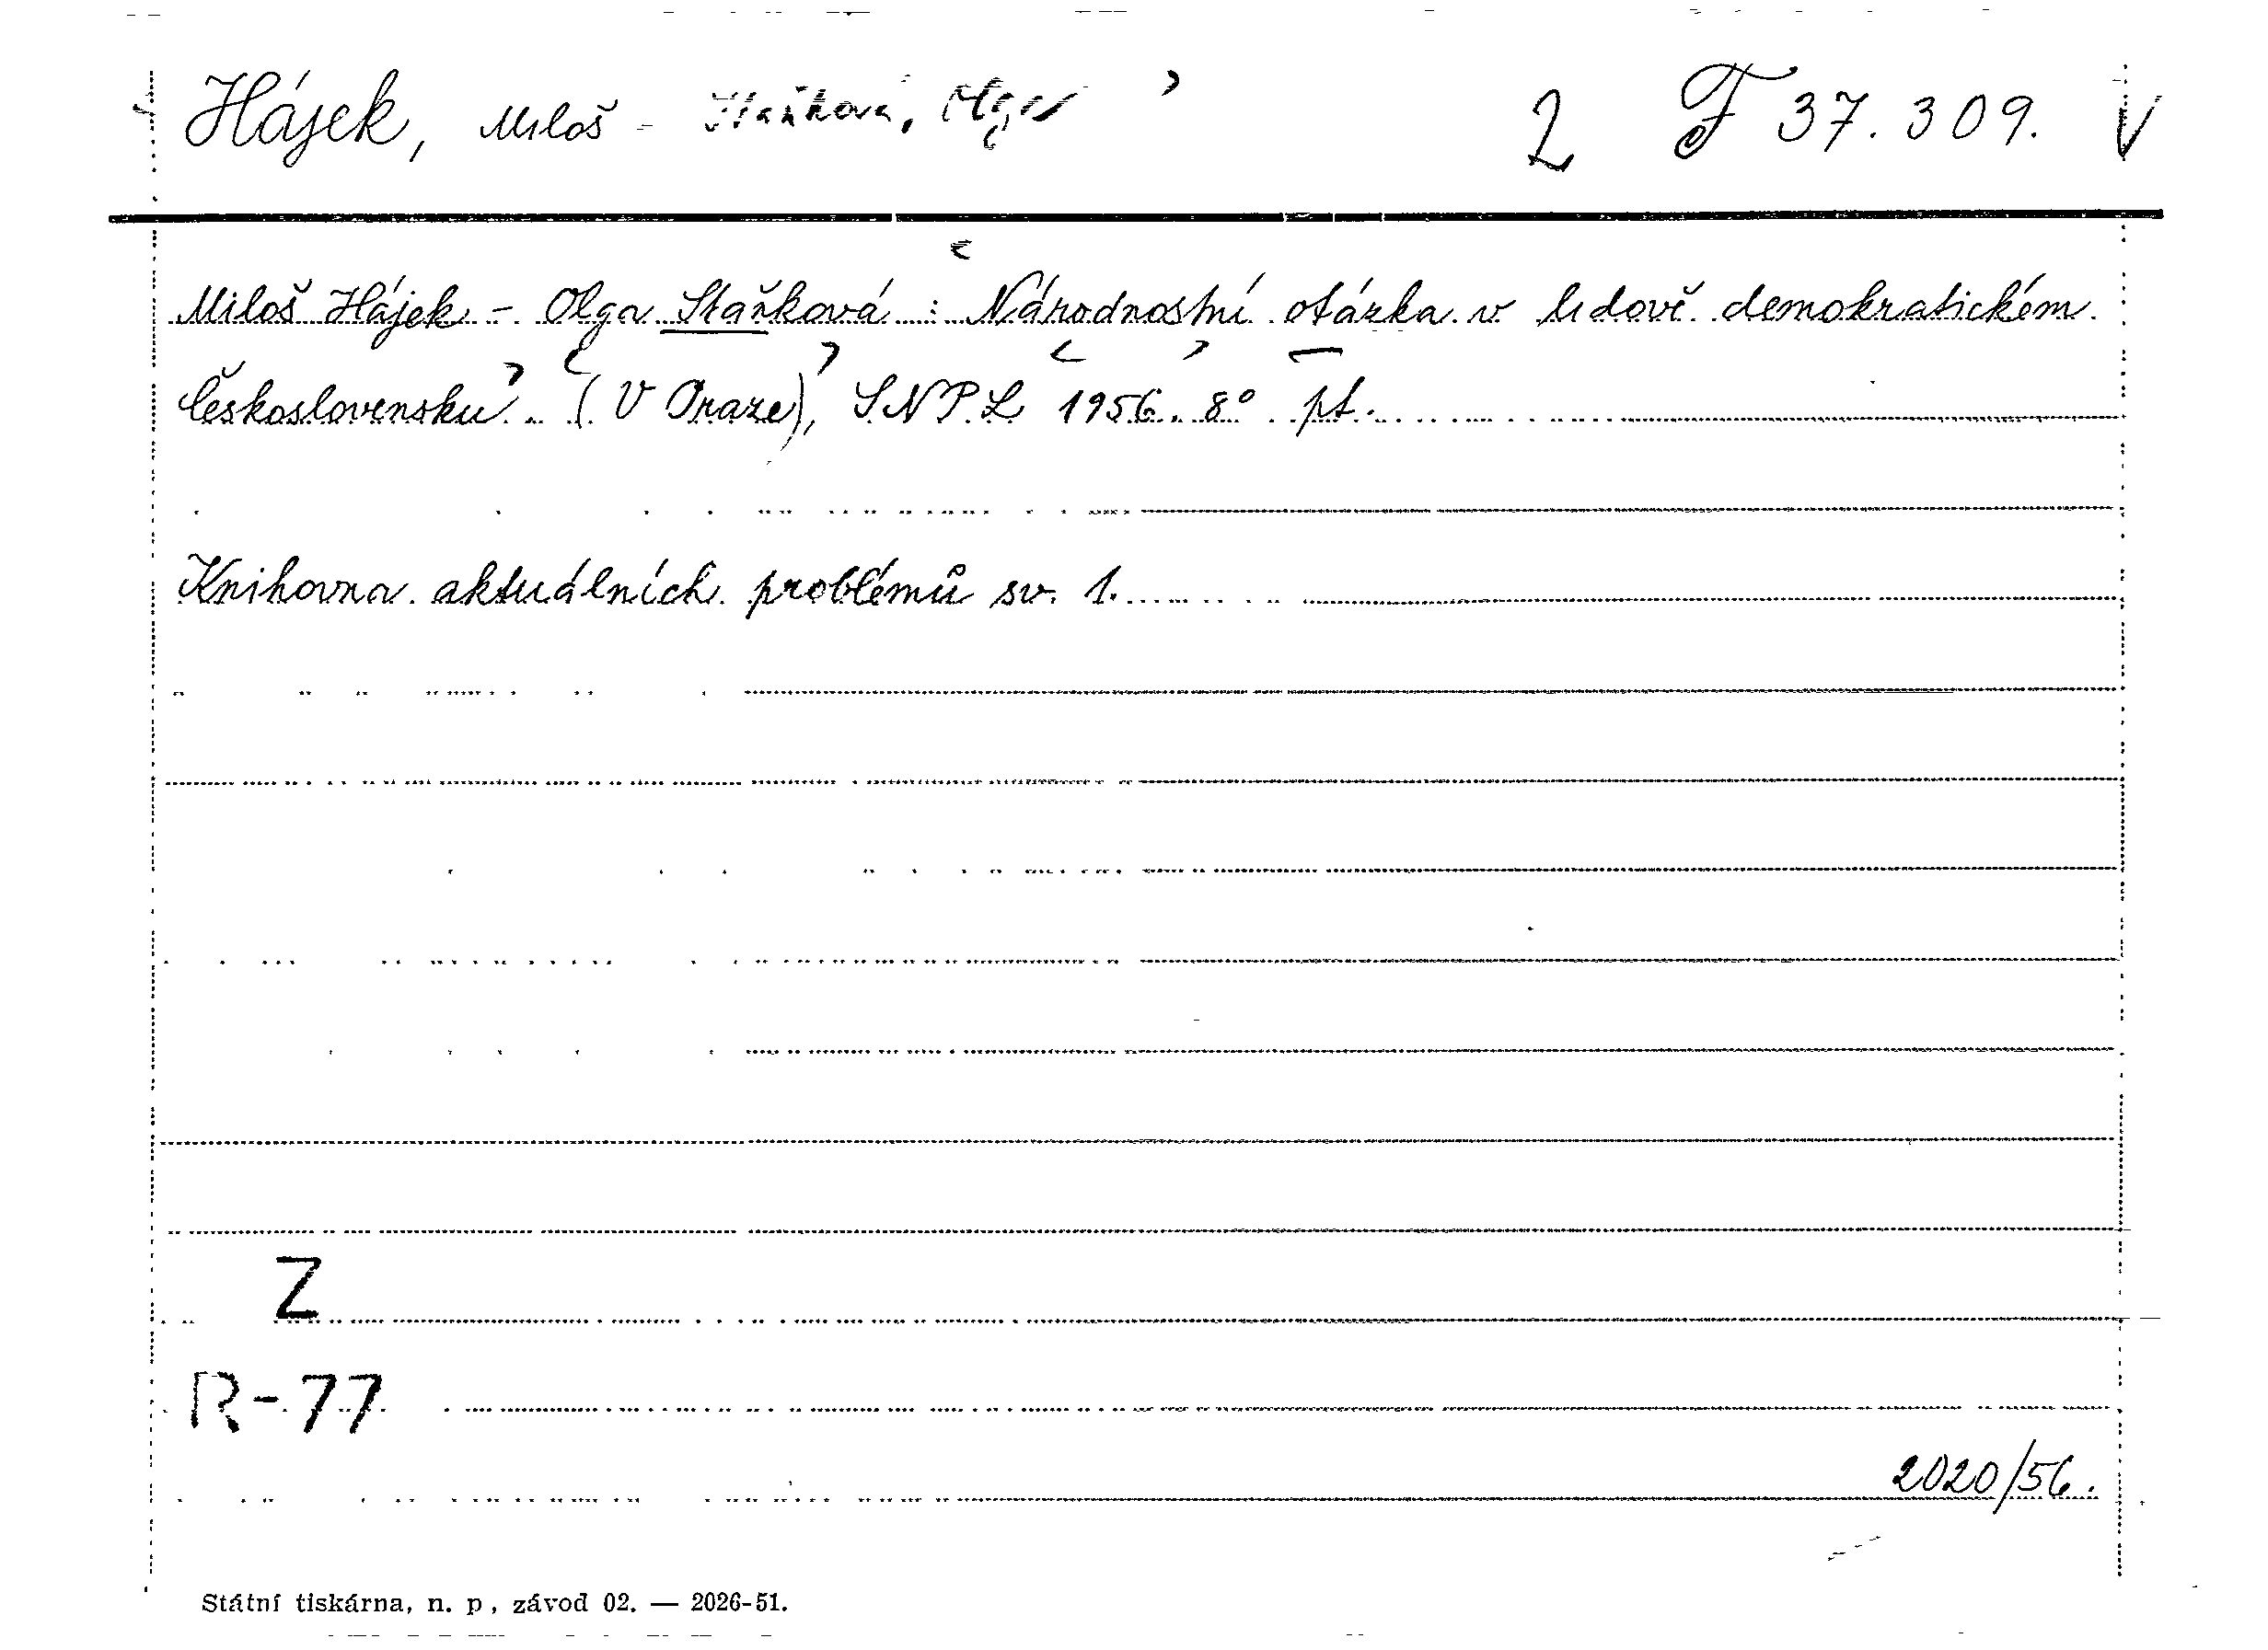 Hájek, Miloš - Staňková, Olga 2 F 37.309. V
Miloš Hájek - Olga Staňková : Národnostní otázka v lidově demokratickém
Československu. (V Praze), SNPL 1956. 8° pt.
Knihovna aktuálních problémů sv. 1.
Z
R-77
2020/56.
Státní tiskárna, n. p., závod 02. — 2026-51.